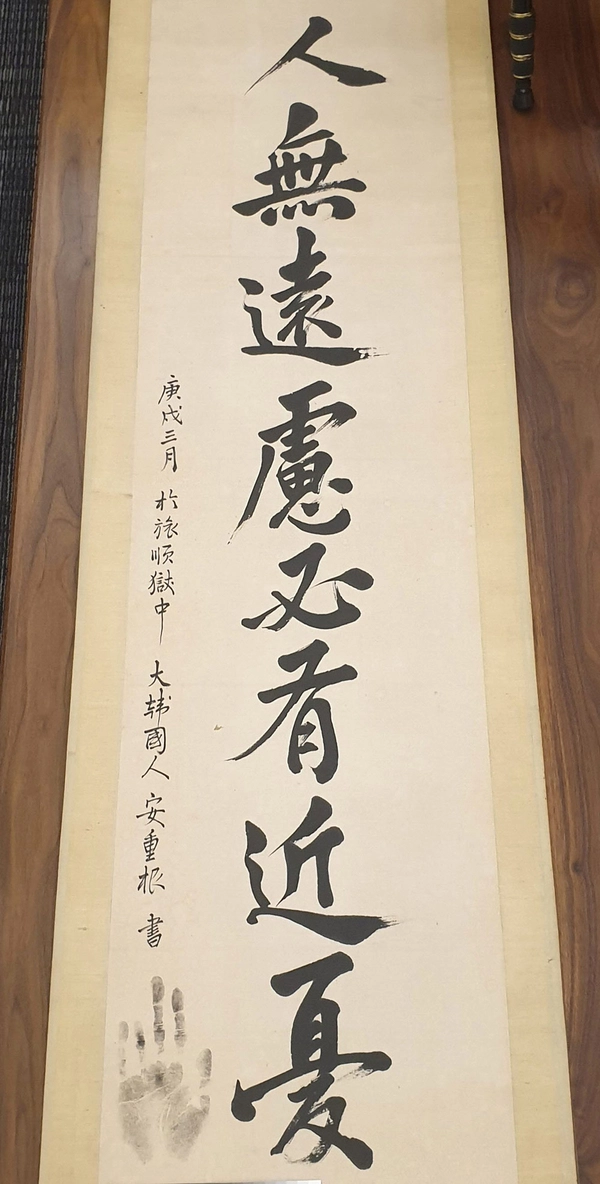 人無遠慮必有近憂
庚戌三月 於旅順獄中 大韩國人 安重根 書